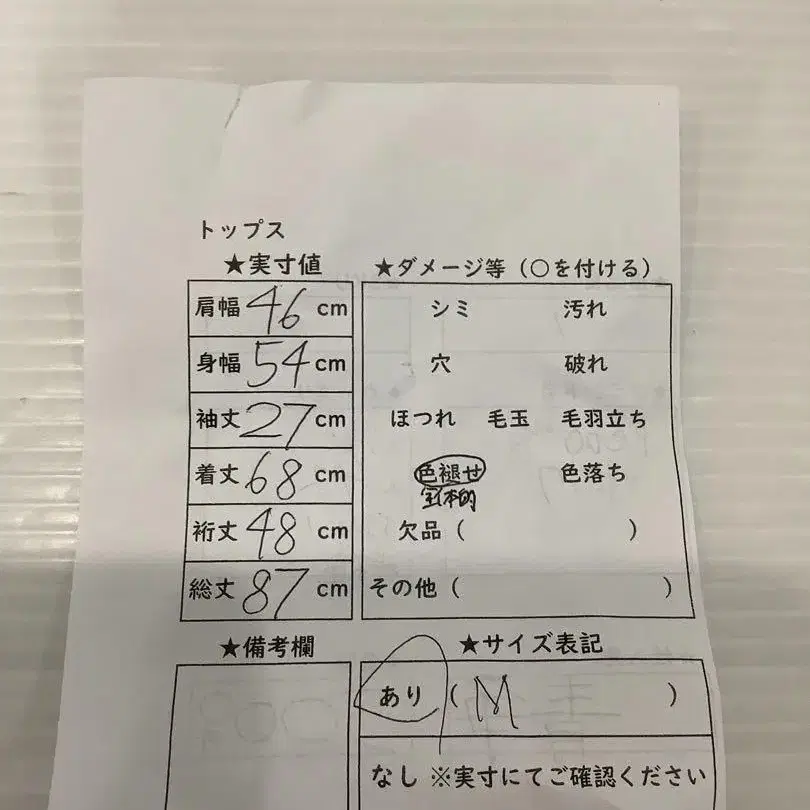 トップス
★実寸値
肩幅 46 cm
身幅 54 cm
袖丈 27 cm
着丈 68 cm
裄丈 48 cm
総丈 87 cm
★ダメージ等（○を付ける）
シミ 汚れ
穴 破れ
ほつれ 毛玉 毛羽立ち
色褪せ 色落ち
全体的
欠品（ ）
その他（ ）
★備考欄
★サイズ表記
あり（ M ）
なし ※実寸にてご確認ください